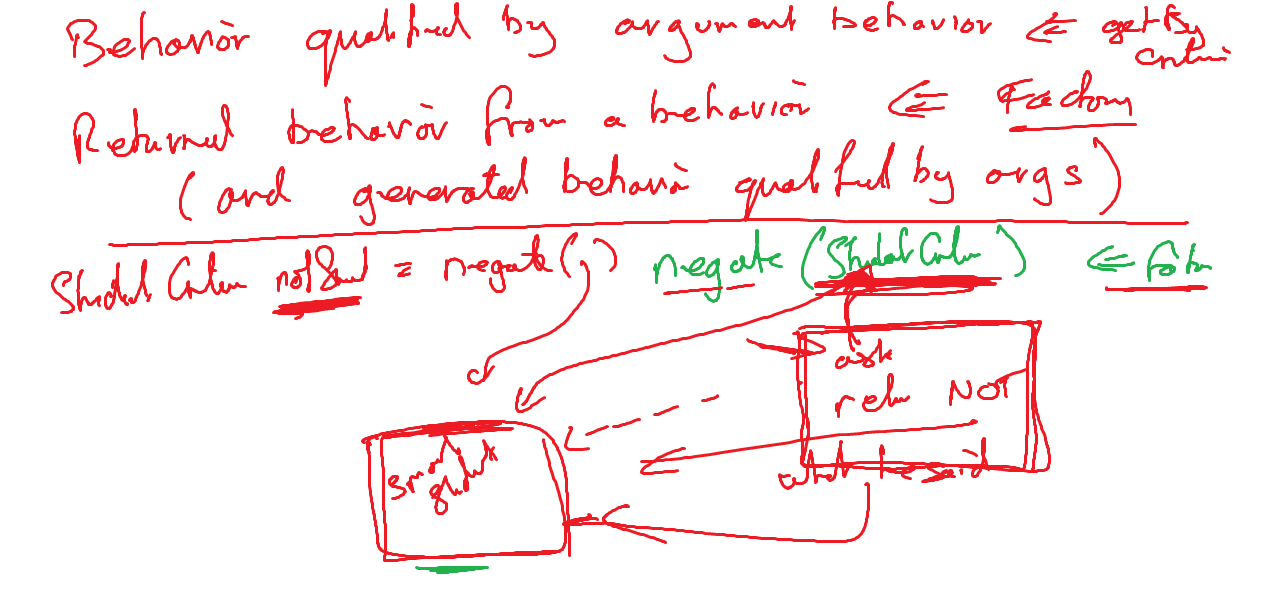 Behavior qualified by argument behavior ⇐ getBy
Criteri
Returned behavior from a behavior ⇐ Factory
(and generated behavior qualified by args)
Student Criterion notSmart = negate( ) negate (Student Criterion) ⇐ Factory
ask
return NOT
what he said
smart
student